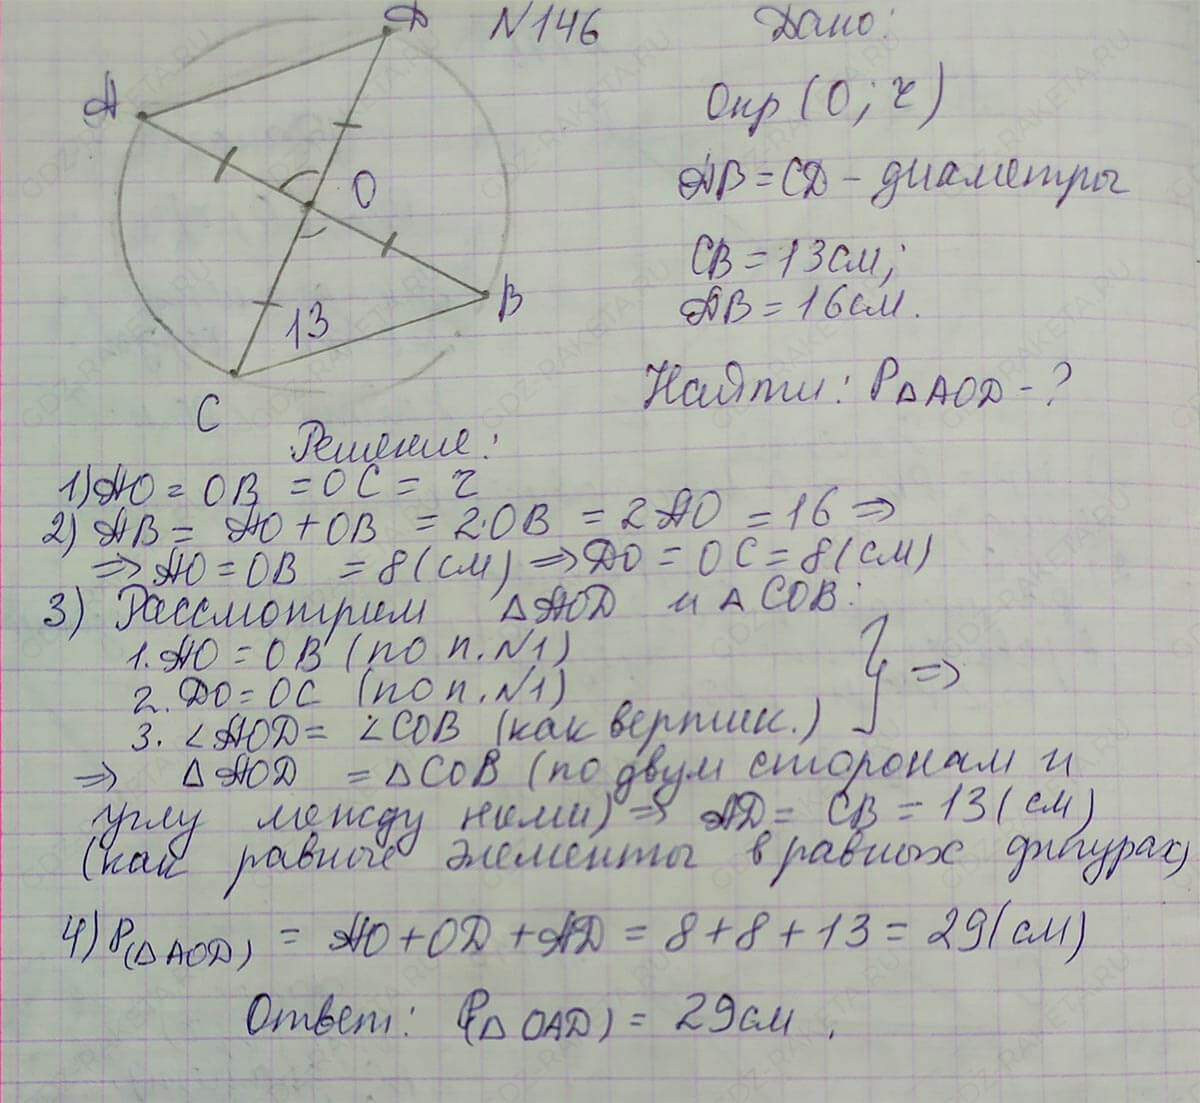 D
N146
Дано:
A
Окр (O; r)
O
AB = CD - диаметры
CB = 13 см;
B
AB = 16 см.
13
C
Найти: P△AOD - ?
Решение:
1) AO = OB = OC = r
2) AB = AO + OB = 2·OB = 2AO = 16 ⇒
⇒ AO = OB = 8 (см) ⇒ DO = OC = 8 (см)
3) Рассмотрим △AOD и △COB:
1. AO = OB (по п. N1)
2. DO = OC (по п. N1)
3. ∠AOD = ∠COB (как вертик.) } ⇒
⇒ △AOD = △COB (по двум сторонам и
углу между ними) ⇒ AD = CB = 13 (см)
(как равные элементы в равных фигурах)
4) P(△AOD) = AO + OD + AD = 8 + 8 + 13 = 29 (см)
Ответ: P(△OAD) = 29 см.
GDZ-RAKETA.RU